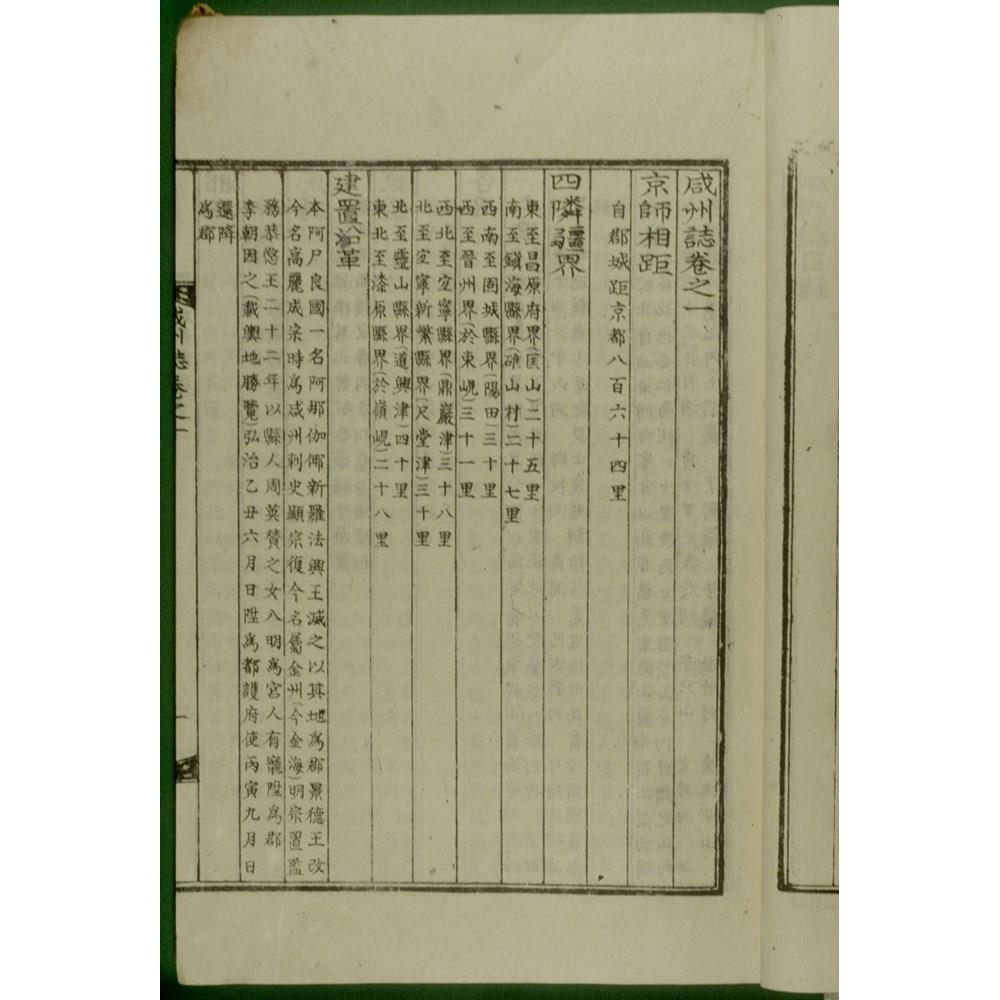 咸州誌卷之一
京師相距
自郡城距京都八百六十四里
四隣疆界
東至昌原府界(匡山)二十五里
南至鎭海縣界(礁山村)二十七里
西南至固城縣界(陽田)三十里
西至晉州界(於東峴)三十一里
西北至宜寧縣界(鼎巖津)三十八里
北至宜寧新繁縣界(尺堂津)三十里
北至靈山縣界(道興津)四十里
東北至漆原縣界(於嶺峴)二十八里
建置沿革
本阿尸良國一名阿那伽倻新羅法興王滅之以其地爲郡景德王改
今名高麗成宗時爲咸州刺史顯宗復今名屬金州(今金海)明宗置監
務恭愍王二十二年以縣人周英贊之女入明爲宮人有寵陞爲郡
李朝因之(載輿地勝覽)弘治乙丑六月日陞爲都護府使丙寅九月日
還降
爲郡
咸州誌卷之一
一